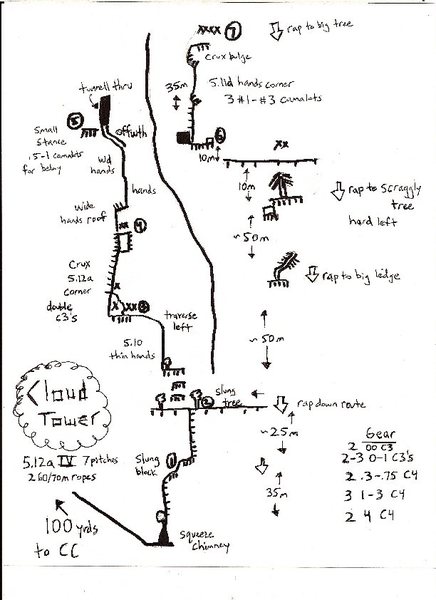 xxxx 7
rap to big tree
crux bulge
35m
5.11d hands corner
3 #1-#3 camalots
6
10m
xx
tunnell thru
5
small
stance
.5-1 camalots
for belay
offwth
wd
hands
hands
wide
hands roof
xx 4
10m
rap to scraggly
tree
hard left
~50m
Crux
5.12a
corner
x
double
63's
x xx 3
rap to big ledge
5.10
thin hands
traverse
left
~50m
Cloud
Tower
slung
tree
2
rap down route
~25m
5.12a IV 7 pitches
2 60/70m ropes
Slung
block
1
35m
Gear
2 00 C3
2-3 0-1 C3's
2 .3-.75 C4
3 1-3 C4
2 4 C4
100 yrds
to CC
squeeze
chimney